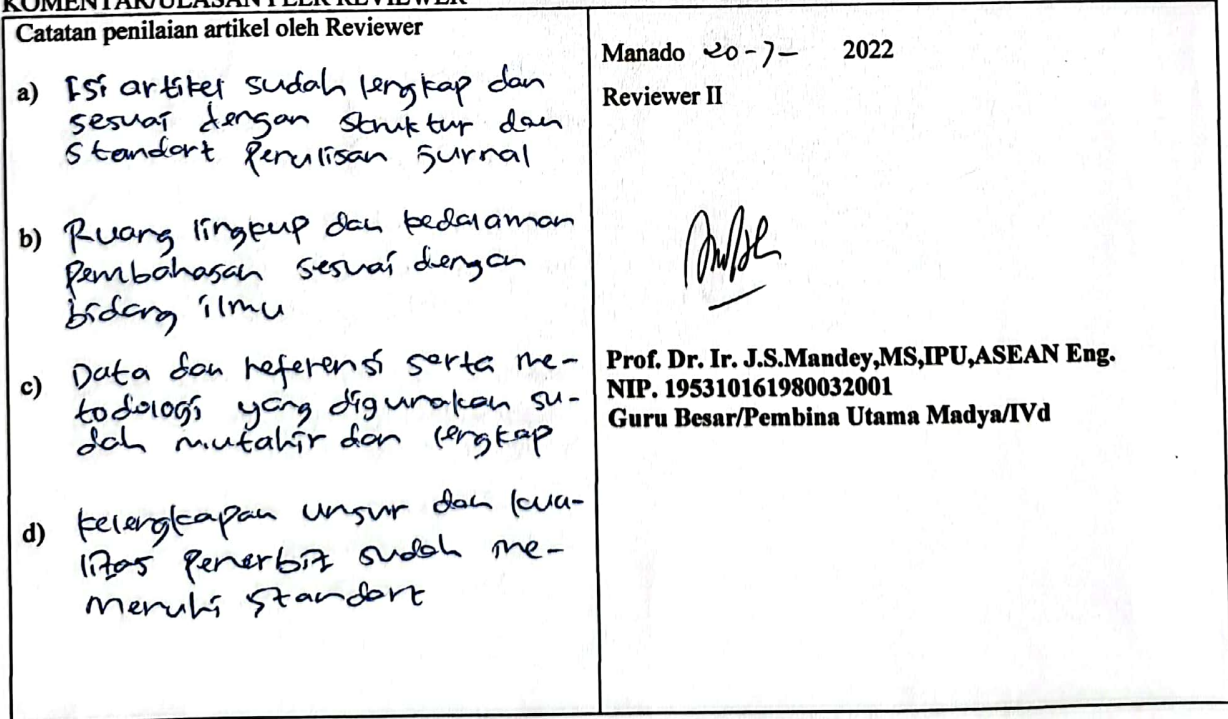 KOMENTAR/ULASAN PEER REVIEWER
Catatan penilaian artikel oleh Reviewer
a) Isi artikel sudah lengkap dan
sesuai dengan struktur dan
standart penulisan jurnal
b) Ruang lingkup dan kedalaman
pembahasan sesuai dengan
bidang ilmu
c) Data dan referensi serta me-
todologi yang digunakan su-
dah mutahir dan lengkap
d) kelengkapan unsur dan kua-
litas penerbit sudah me-
menuhi standart
Manado 20-7- 2022
Reviewer II
Prof. Dr. Ir. J.S.Mandey,MS,IPU,ASEAN Eng.
NIP. 195310161980032001
Guru Besar/Pembina Utama Madya/IVd